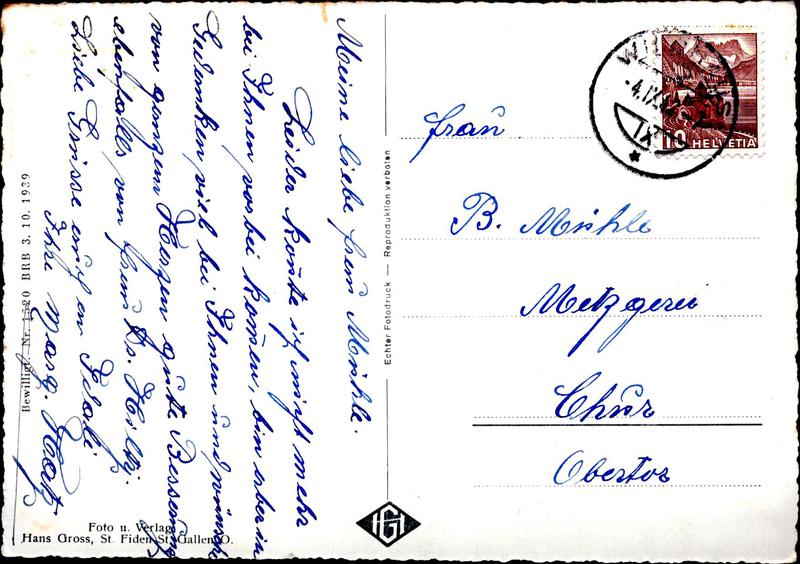 Meine liebe Frau Mühle.
Leider konte ich nicht mehr
bei Ihnen vorbei komen, bin aber in
Gedanken viel bei Ihnen und wünsche
von ganzem Herzen gute Besserung
ebenfalls von Frau Ds. Holz.
Liebe Grüsse auch an Idali
Ihre Marg.
Bewilligt. Nr. 1520 BRB 3. 10. 1939
Foto u. Verlag
Hans Gross, St. Fiden-St. Gallen O.
Echter Fotodruck — Reproduktion verboten
HGI
4.IX
IX
10 HELVETIA
Frau
B. Mühle
Metzgerei
Chur
Obertor